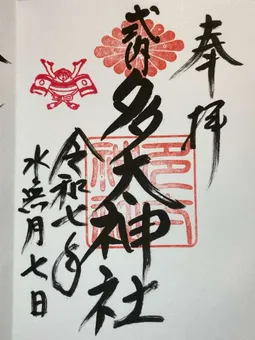 奉拝
式内
多太神社
令和七年
水無月七日